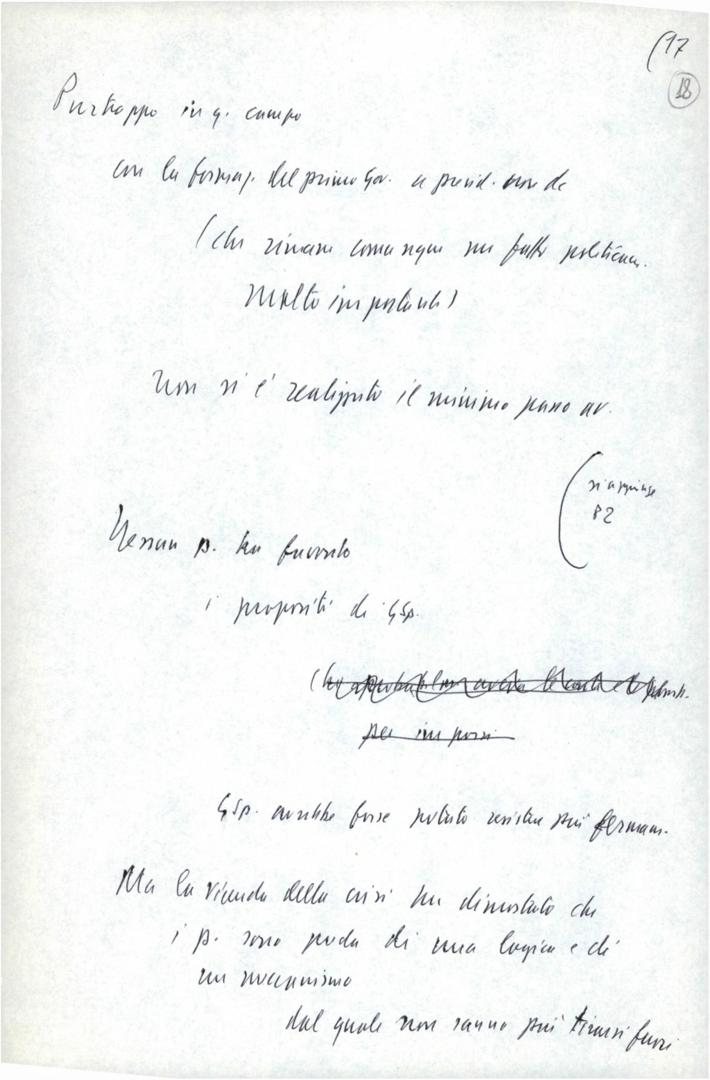 (17
18
Purtroppo in q. campo
con la formaz. del primo Gov. a presid. non dc
(che rimane comunque un fatto politicam.
molto importante)
non si è realizzato il minimo passo av.
(si aggiunge
P2
Nessun p. ha favorito
i propositi di GSp.
per imporsi
GSp. avrebbe forse potuto resistere più fermam.
Ma la vicenda della crisi ha dimostrato che
i p. sono preda di una logica e di
un meccanismo
dal quale non sanno più tirarsi fuori